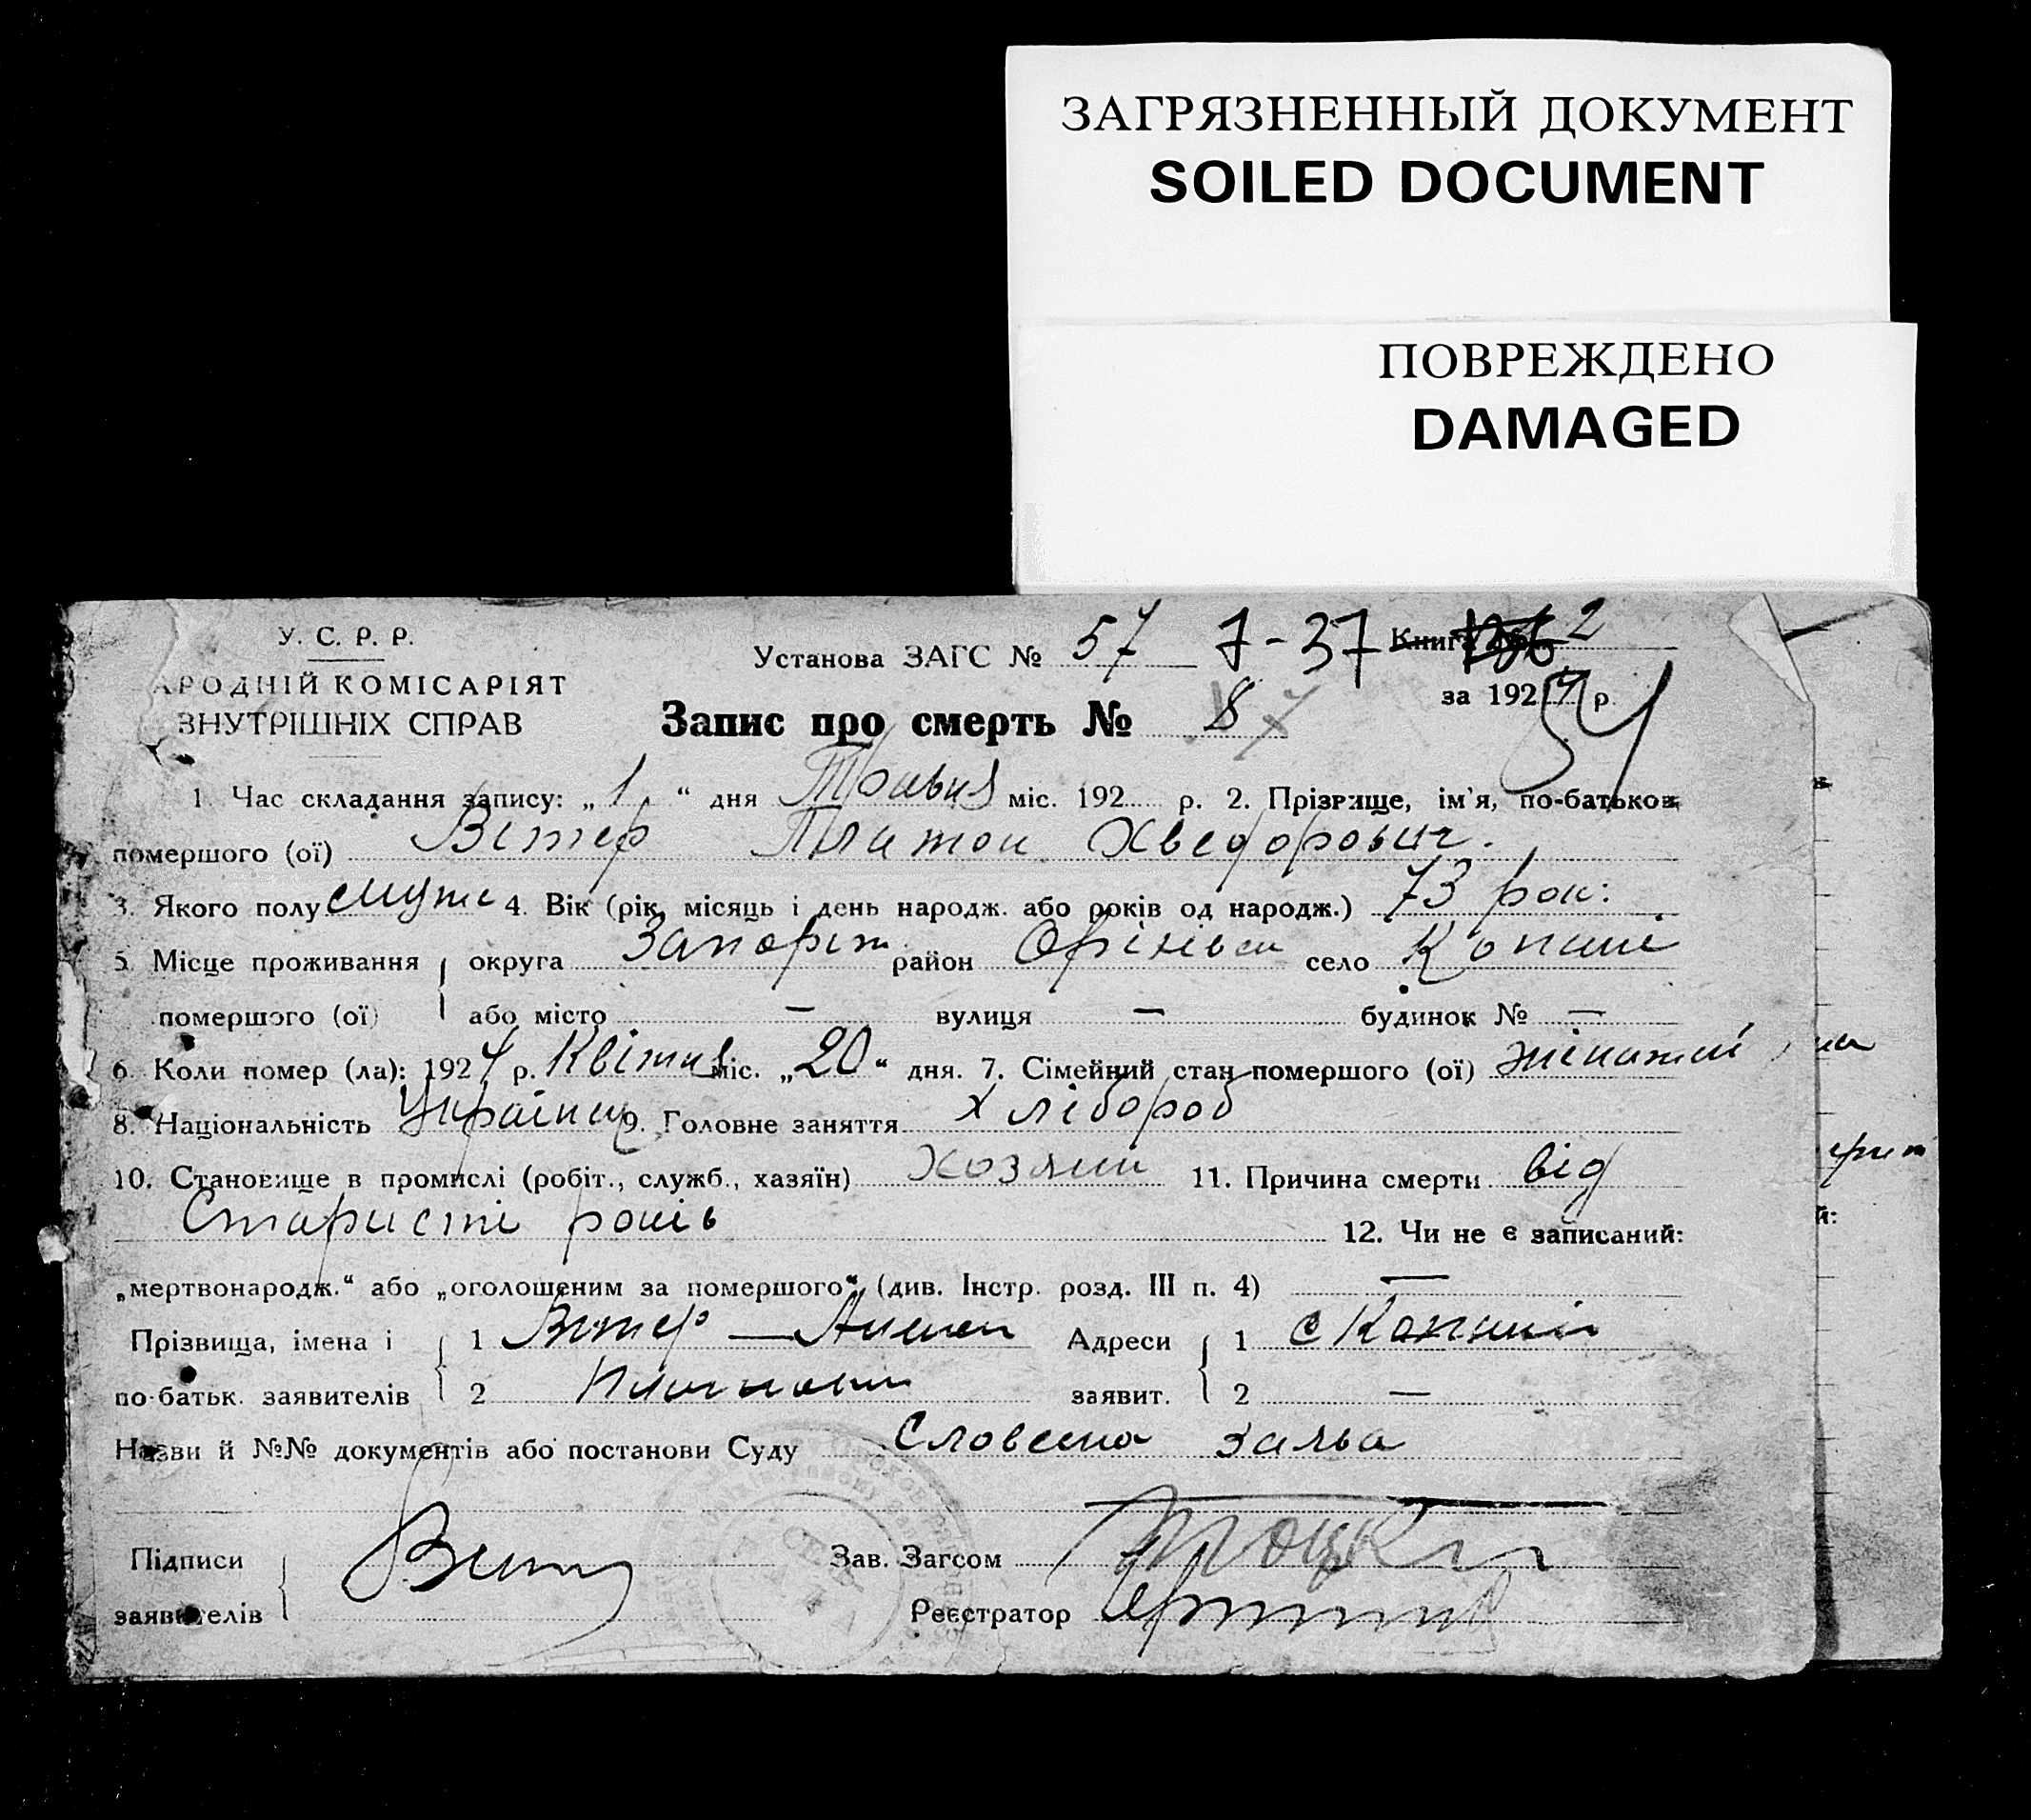 ЗАГРЯЗНЕННЫЙ ДОКУМЕНТ
SOILED DOCUMENT
ПОВРЕЖДЕНО
DAMAGED
У. С. Р. Р.
АРОДНІЙ КОМІСАРІЯТ
ЗНУТРІШНІХ СПРАВ
Установа ЗАГС № 57 7-37 Книга 2
за 1924 р.
Запис про смерть № 8
54
1. Час складання запису: „1“ дня Травня міс. 192 р. 2. Прізвище, ім'я, по-батьков
помершого (ої) Вітер Платон Хведорович.
3. Якого полу смуж 4. Вік (рік, місяць і день народж. або років од народж.) 73 рок:
5. Місце проживання округа Запоріж район Оріхівськ село Копані
помершого (ої) або місто — вулиця — будинок № —
6. Коли помер (ла): 1924 р. Квітня міс. „20“ дня. 7. Сімейний стан помершого (ої) жінатий
8. Національність Українц 9. Головне заняття хлібороб
10. Становище в промислі (робіт., служб., хазяїн) хозяин 11. Причина смерти від
Старисті років 12. Чи не є записаний:
„мертвонародж.“ або „оголошеним за помершого“ (див. Інстр. розд. III п. 4) —
Прізвища, імена і 1 Вітер — Адреси 1 с Копанів
по-батьк. заявителів 2 заявит. 2 —
Назви й №№ документів або постанови Суду Словесна заява
Підписи Зав. Загсом
заявителів Реєстратор